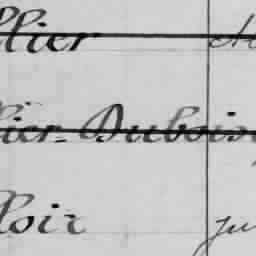 llier
lier-Dubois
loir Ju